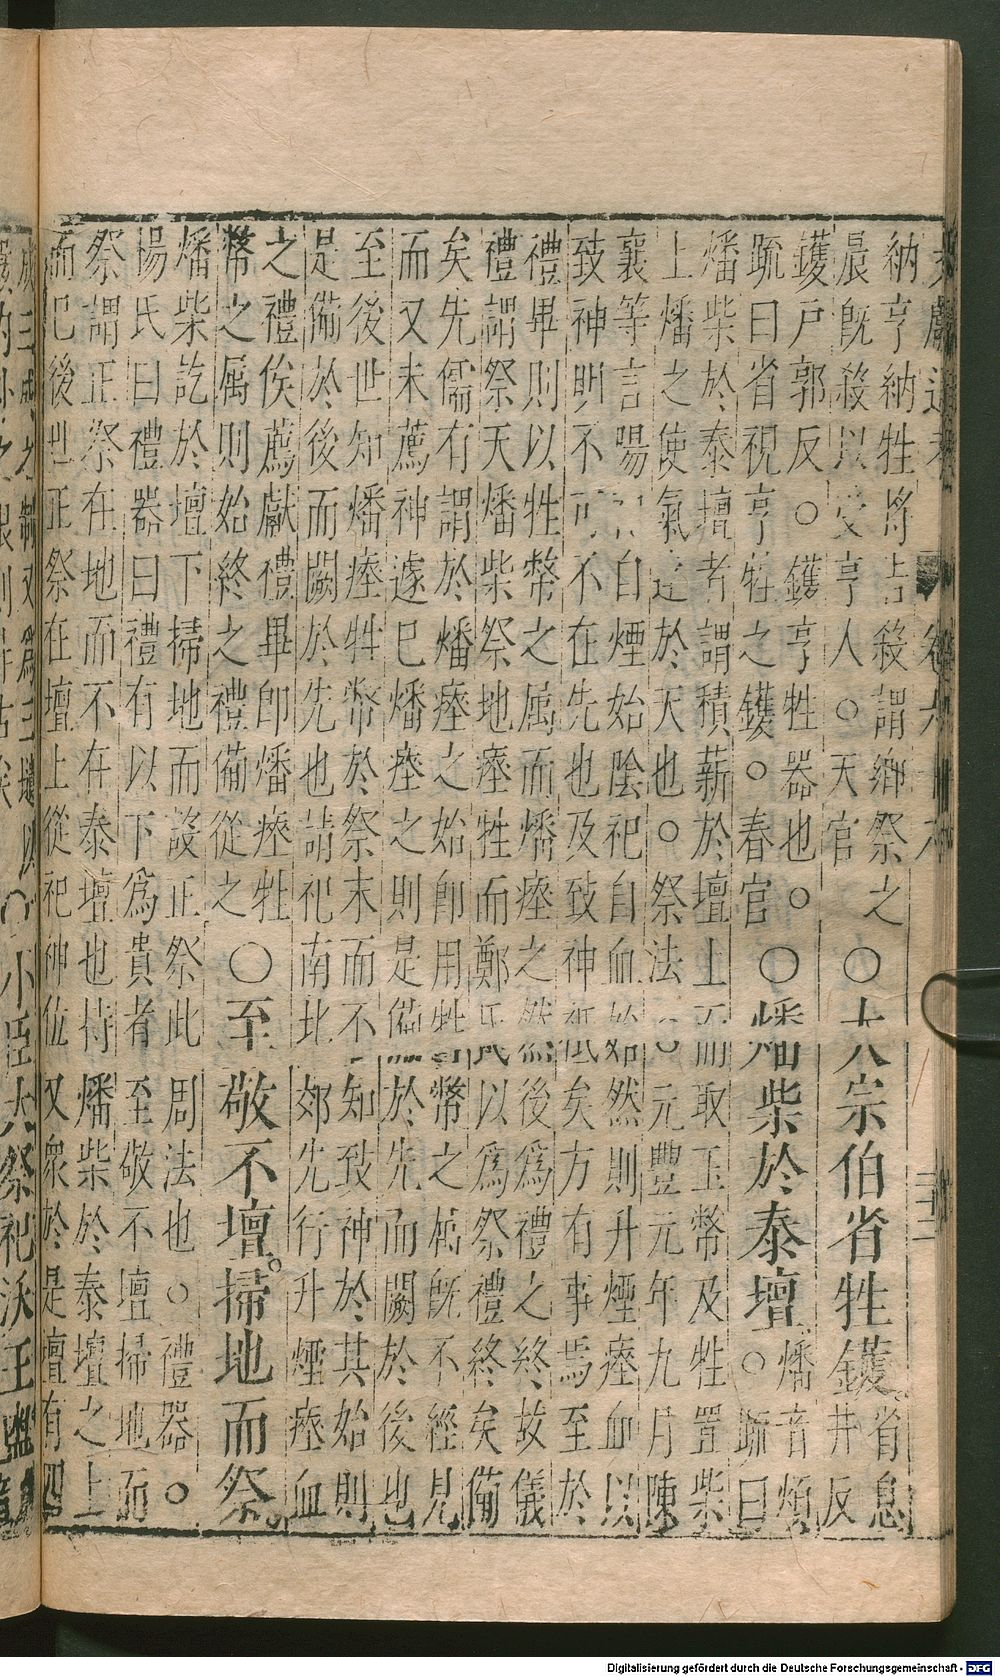 文獻通考 卷六十八 三十二
納亨納牲將告殺謂鄉祭之
晨既殺以受亨人。天官
〇大宗伯省牲鑊
省息
井反
鑊戶郭反。鑊亨牲器也。
疏曰省視亨牲之鑊。春官
〇燔柴於泰壇
燔音煩
。疏曰
燔柴於泰壇者謂積薪於壇上而取玉幣及牲置柴
上燔之使氣達於天也。祭法。元豐元年九月陳
襄等言陽祀自煙始陰祀自血始然則升煙瘞血以
致神明不可不在先也及致神祗矣方有事焉至於
禮畢則以牲幣之属而燔瘞之然後爲禮之終故儀
禮謂祭天燔柴祭地瘞牲而鄭氏以爲祭禮終矣備
矣先儒有謂於燔瘞之始卽用牲幣之属既不經見
而又未薦神遽巳燔瘞之則是備於先而闕於後也
至後世知燔瘞牲幣於祭末而不知致神於其始則
是備於後而闕於先也請祀南北郊先行升煙瘞血
之禮俟薦獻禮畢卽燔瘞牲
幣之属則始終之禮備從之
〇至敬不壇。掃地而祭。
燔柴訖於壇下掃地而設正祭此周法也。禮器。
楊氏曰禮器曰禮有以下爲貴者至敬不壇掃地而
祭謂正祭在地而不在泰壇也持燔柴於泰壇之上
而巳後世正祭在壇上從祀神位又衆於是壇有四
成三成之制又爲三壝以
〇小臣大祭祀沃王盥
Digitalisierung gefördert durch die Deutsche Forschungsgemeinschaft - DFG